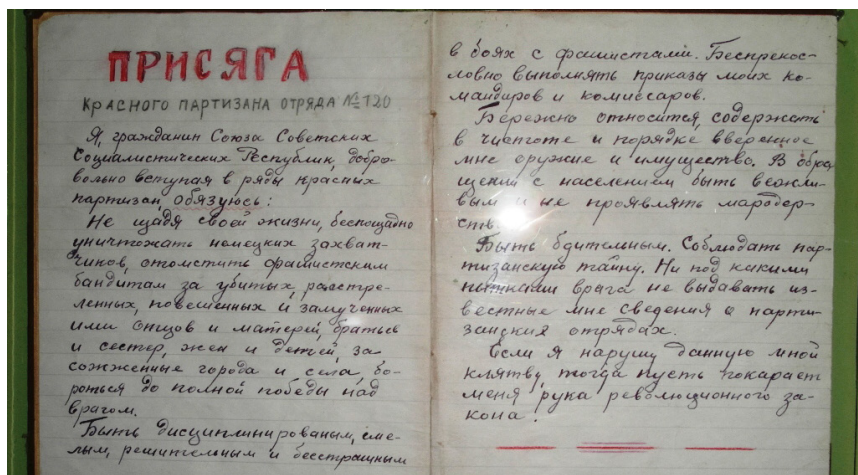 ПРИСЯГА
КРАСНОГО ПАРТИЗАНА ОТРЯДА №120
Я, гражданин Союза Советских
Социалистических Республик, добро-
вольно вступая в ряды красных
партизан, обязуюсь:
Не щадя своей жизни, беспощадно
уничтожать немецких захват-
чиков, отомстить фашистским
бандитам за убитых, расстре-
ленных, повешенных и замученных
ими отцов и матерей, братьев
и сестер, жен и детей, за
сожженные города и села, бо-
роться до полной победы над
врагом.
Быть дисциплинированым, сме-
лым, решительным и бесстрашным
в боях с фашистами. Беспрекос-
ловно выполнять приказы моих ко-
мандиров и комиссаров.
Бережно относится, содержать
в чистоте и порядке вверенное
мне оружие и имущество. В обра-
щении с населением быть вежли-
вым и не проявлять мародер-
ств.
Быть бдительным. Соблюдать пар-
тизанскую тайну. Ни под какими
пытками врага не выдавать из-
вестные мне сведения о парти-
занских отрядах.
Если я нарушу данную мной
клятву, тогда пусть покарает
меня рука революционного за-
кона.